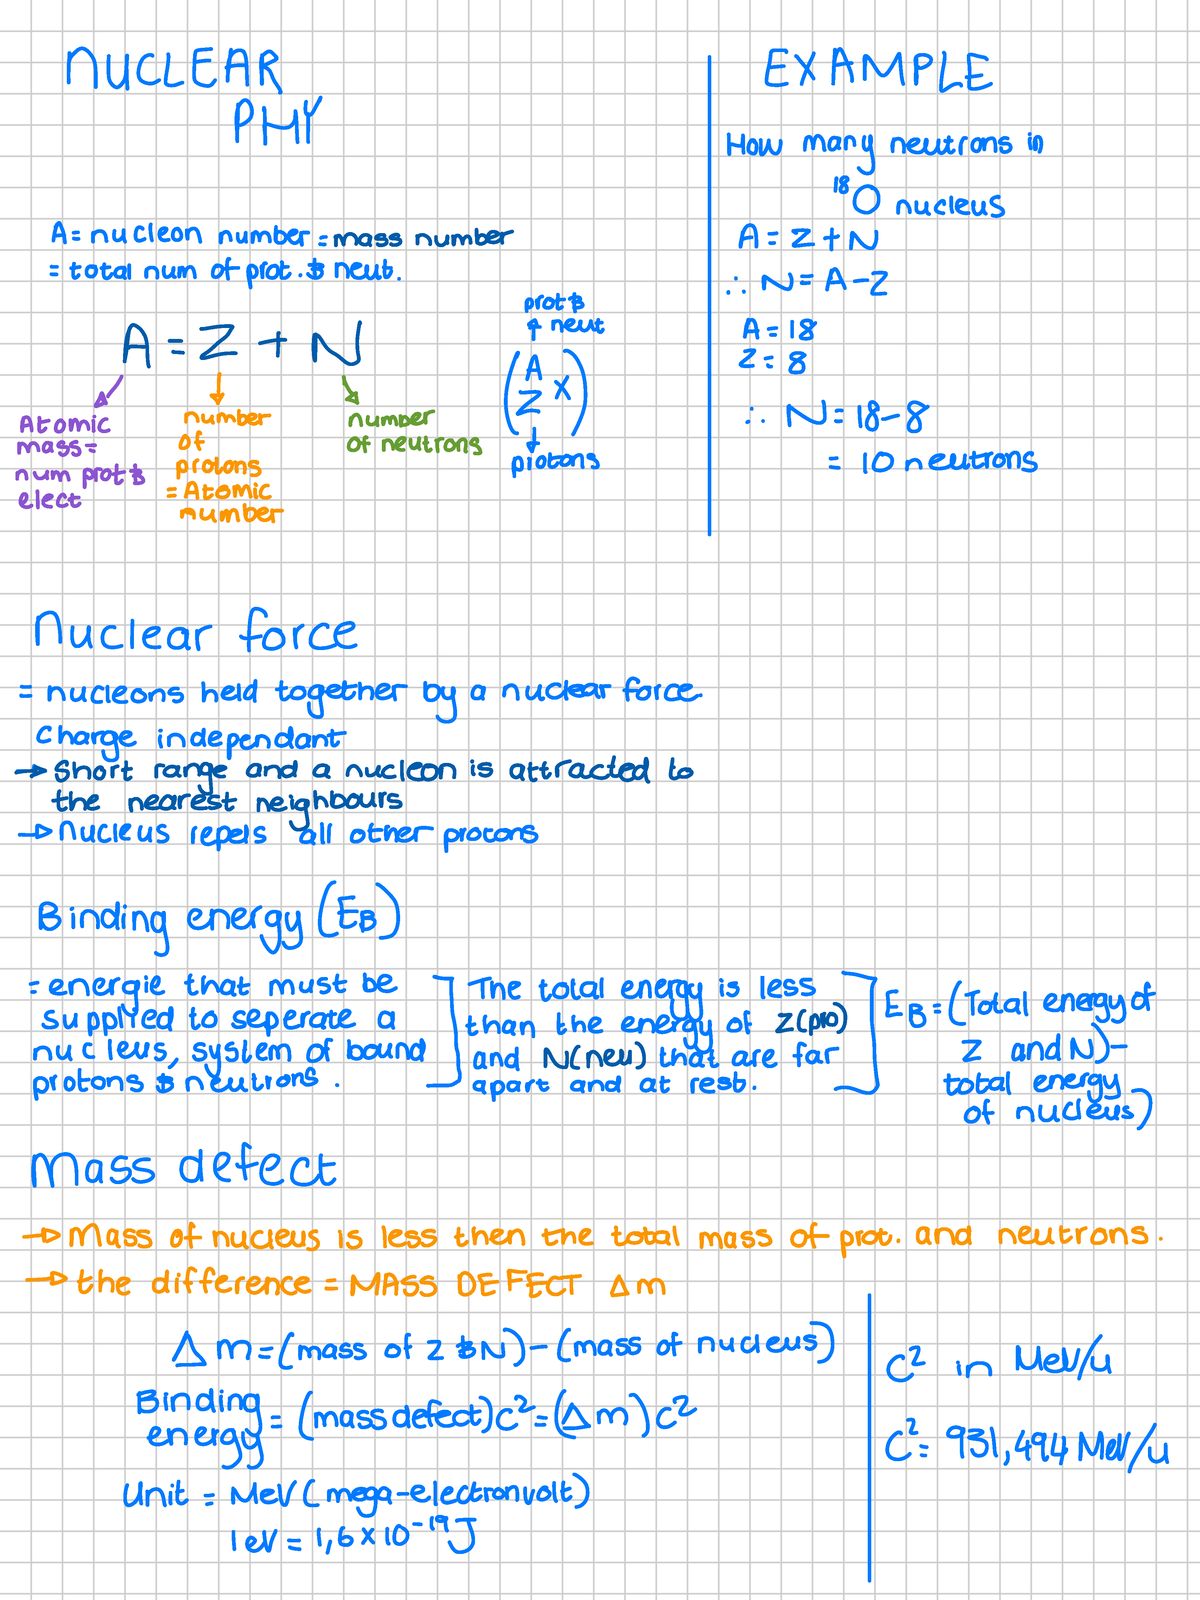 NUCLEAR
PHY
A= nucleon number = mass number
= total num of prot. & neut.
A = Z + N
Atomic
mass =
num prot &
elect
number
of
protons
= Atomic
number
number
of neutrons
prot &
neut
A
Z X
protons
EXAMPLE
How many neutrons in
18O nucleus
A = Z + N
∴ N = A - Z
A = 18
Z = 8
∴ N = 18 - 8
= 10 neutrons
Nuclear force
= nucleons held together by a nuclear force
Charge independant
→ Short range and a nucleon is attracted to
the nearest neighbours
→ Nucleus repels all other protons
Binding energy (EB)
= energie that must be
supplyed to seperate a
nucleus, system of bound
protons & neutrons.
The total energy is less
than the energy of Z(pro)
and N(neu) that are far
apart and at rest.
EB = (Total energy of
Z and N) -
total energy
of nucleus)
Mass defect
→ Mass of nucleus is less then the total mass of prot. and neutrons.
→ the difference = MASS DEFECT Δm
Δm = (mass of Z & N) - (mass of nucleus)
Binding
energy = (mass defect)c² = (Δm)c²
Unit = MeV (mega-electronvolt)
1eV = 1,6 × 10⁻¹⁹ J
C² in MeV/u
C² = 931,494 MeV/u